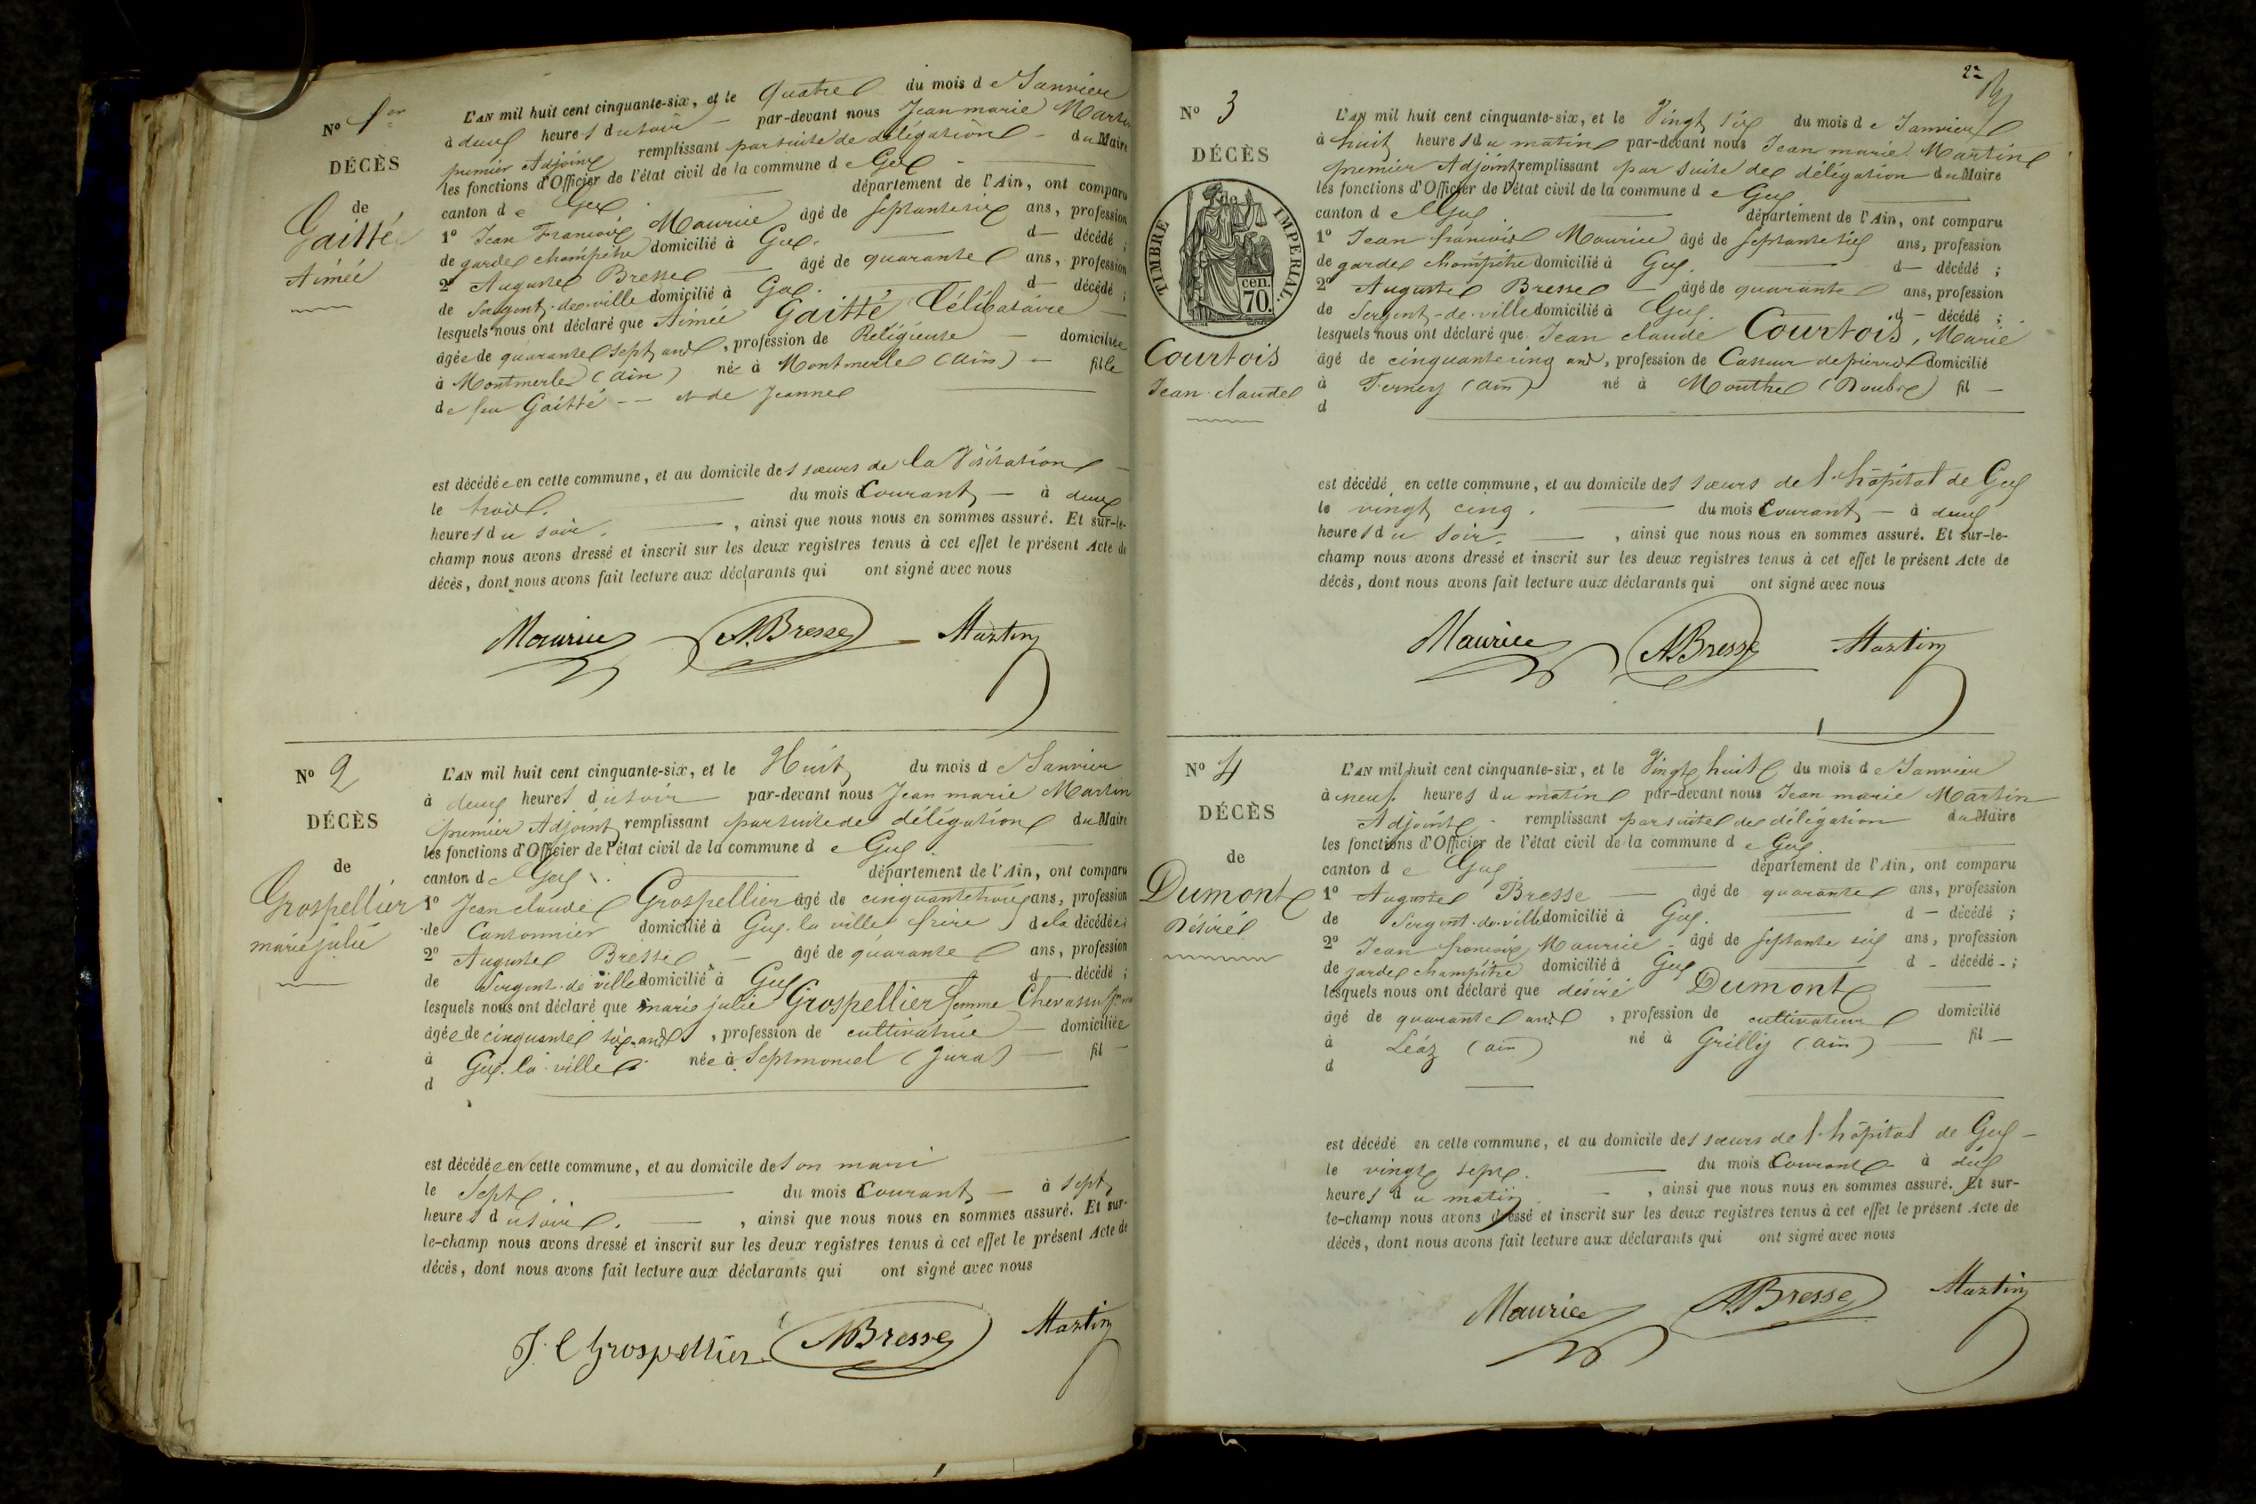 No 1er
DÉCÈS
de
Gaitté
Aimée
L'AN mil huit cent cinquante-six, et le Quatre du mois de Janvier
à deux heures du soir par-devant nous Jean marie Martin
premier Adjoint remplissant par suite de délégation du Maire
les fonctions d'Officier de l'état civil de la commune de Gex
canton de Gex département de l'Ain, ont comparu
1° Jean François Maurice âgé de septante six ans, profession
de garde champêtre domicilié à Gex. d — décédé ;
2° Auguste Bresse âgé de quarante ans, profession
de Sergent-de-ville domicilié à Gex. d — décédé ;
lesquels nous ont déclaré que Aimée Gaitté Célibataire
âgée de quarante sept ans, profession de Religieuse — domiciliée
à Montmerle (ain) née à Montmerle (ain) — fille
de feu Gaitté -- et de Jeanne
est décédée en cette commune, et au domicile des sœurs de la Visitation —
le trois. du mois Courant — à deux
heures du soir. , ainsi que nous nous en sommes assuré. Et sur-le-
champ nous avons dressé et inscrit sur les deux registres tenus à cet effet le présent Acte de
décès, dont nous avons fait lecture aux déclarants qui ont signé avec nous
Maurice A.Bresse Martin
No 2
DÉCÈS
de
Grospellier
marie julie
L'AN mil huit cent cinquante-six, et le Huit du mois de Janvier
à deux heures du soir par-devant nous Jean marie Martin
premier Adjoint remplissant par suite de délégation du Maire
les fonctions d'Officier de l'état civil de la commune de Gex.
canton de Gex. département de l'Ain, ont comparu
1° Jean claude Grospellier âgé de cinquante trois ans, profession
de Cantonnier domicilié à Gex. la ville frère de la décédée ;
2° Auguste Bresse — âgé de quarante ans, profession
de Sergent-de-ville domicilié à Gex d — décédé ;
lesquels nous ont déclaré que marie julie Grospellier femme Chevassu
âgée de cinquante six ans, profession de cultivatrice — domiciliée
à Gex. la ville. née à Septmoncel (Jura) — fil —
d
est décédée en cette commune, et au domicile de son mari
le Sept. du mois Courant — à sept
heures du soir. — , ainsi que nous nous en sommes assuré. Et sur-
le-champ nous avons dressé et inscrit sur les deux registres tenus à cet effet le présent Acte de
décès, dont nous avons fait lecture aux déclarants qui ont signé avec nous
J. C Grospellier ABresse Martin
22
No 3
DÉCÈS
TIMBRE IMPERIAL.
cen.
70.
Courtois
Jean claude
L'AN mil huit cent cinquante-six, et le Vingt six du mois de Janvier
à huit heures du matin par-devant nous Jean marie Martin
premier Adjoint remplissant par suite de délégation du Maire
les fonctions d'Officier de l'état civil de la commune de Gex
canton de Gex — département de l'Ain, ont comparu
1° Jean françois Maurice âgé de septante six ans, profession
de garde champêtre domicilié à Gex. d — décédé ;
2° Auguste Bresse — âgé de quarante ans, profession
de Sergent-de-ville domicilié à Gex. d — décédé ;
lesquels nous ont déclaré que Jean claude Courtois, Marié
âgé de cinquante cinq ans, profession de Casseur de pierres domicilié
à Ferney (ain) né à Mouthe (Doubs) fil —
d
est décédé en cette commune, et au domicile des sœurs de l'hôpital de Gex
le vingt cinq. du mois Courant — à deux
heures du soir. — , ainsi que nous nous en sommes assuré. Et sur-le-
champ nous avons dressé et inscrit sur les deux registres tenus à cet effet le présent Acte de
décès, dont nous avons fait lecture aux déclarants qui ont signé avec nous
Maurice A.Bresse Martin
No 4
DÉCÈS
de
Dumont
Désiré
L'AN mil huit cent cinquante-six, et le Vingt huit du mois de Janvier
à neuf heures du matin par-devant nous Jean marie Martin
Adjoint remplissant par suite de délégation du Maire
les fonctions d'Officier de l'état civil de la commune de Gex.
canton de Gex — département de l'Ain, ont comparu
1° Auguste Bresse — âgé de quarante ans, profession
de Sergent-de-ville domicilié à Gex. d — décédé ;
2° Jean françois Maurice — âgé de septante six ans, profession
de garde champêtre domicilié à Gex d — décédé — ;
lesquels nous ont déclaré que désiré Dumont
âgé de quarante ans, profession de cultivateur domicilié
à Léaz (ain) né à Grilly (ain) — fil —
d
est décédé en cette commune, et au domicile des sœurs de l'hôpital de Gex —
le vingt sept. — du mois Courant à dix
heures du matin — , ainsi que nous nous en sommes assuré. Et sur-
le-champ nous avons dressé et inscrit sur les deux registres tenus à cet effet le présent Acte de
décès, dont nous avons fait lecture aux déclarants qui ont signé avec nous
Maurice ABresse Martin